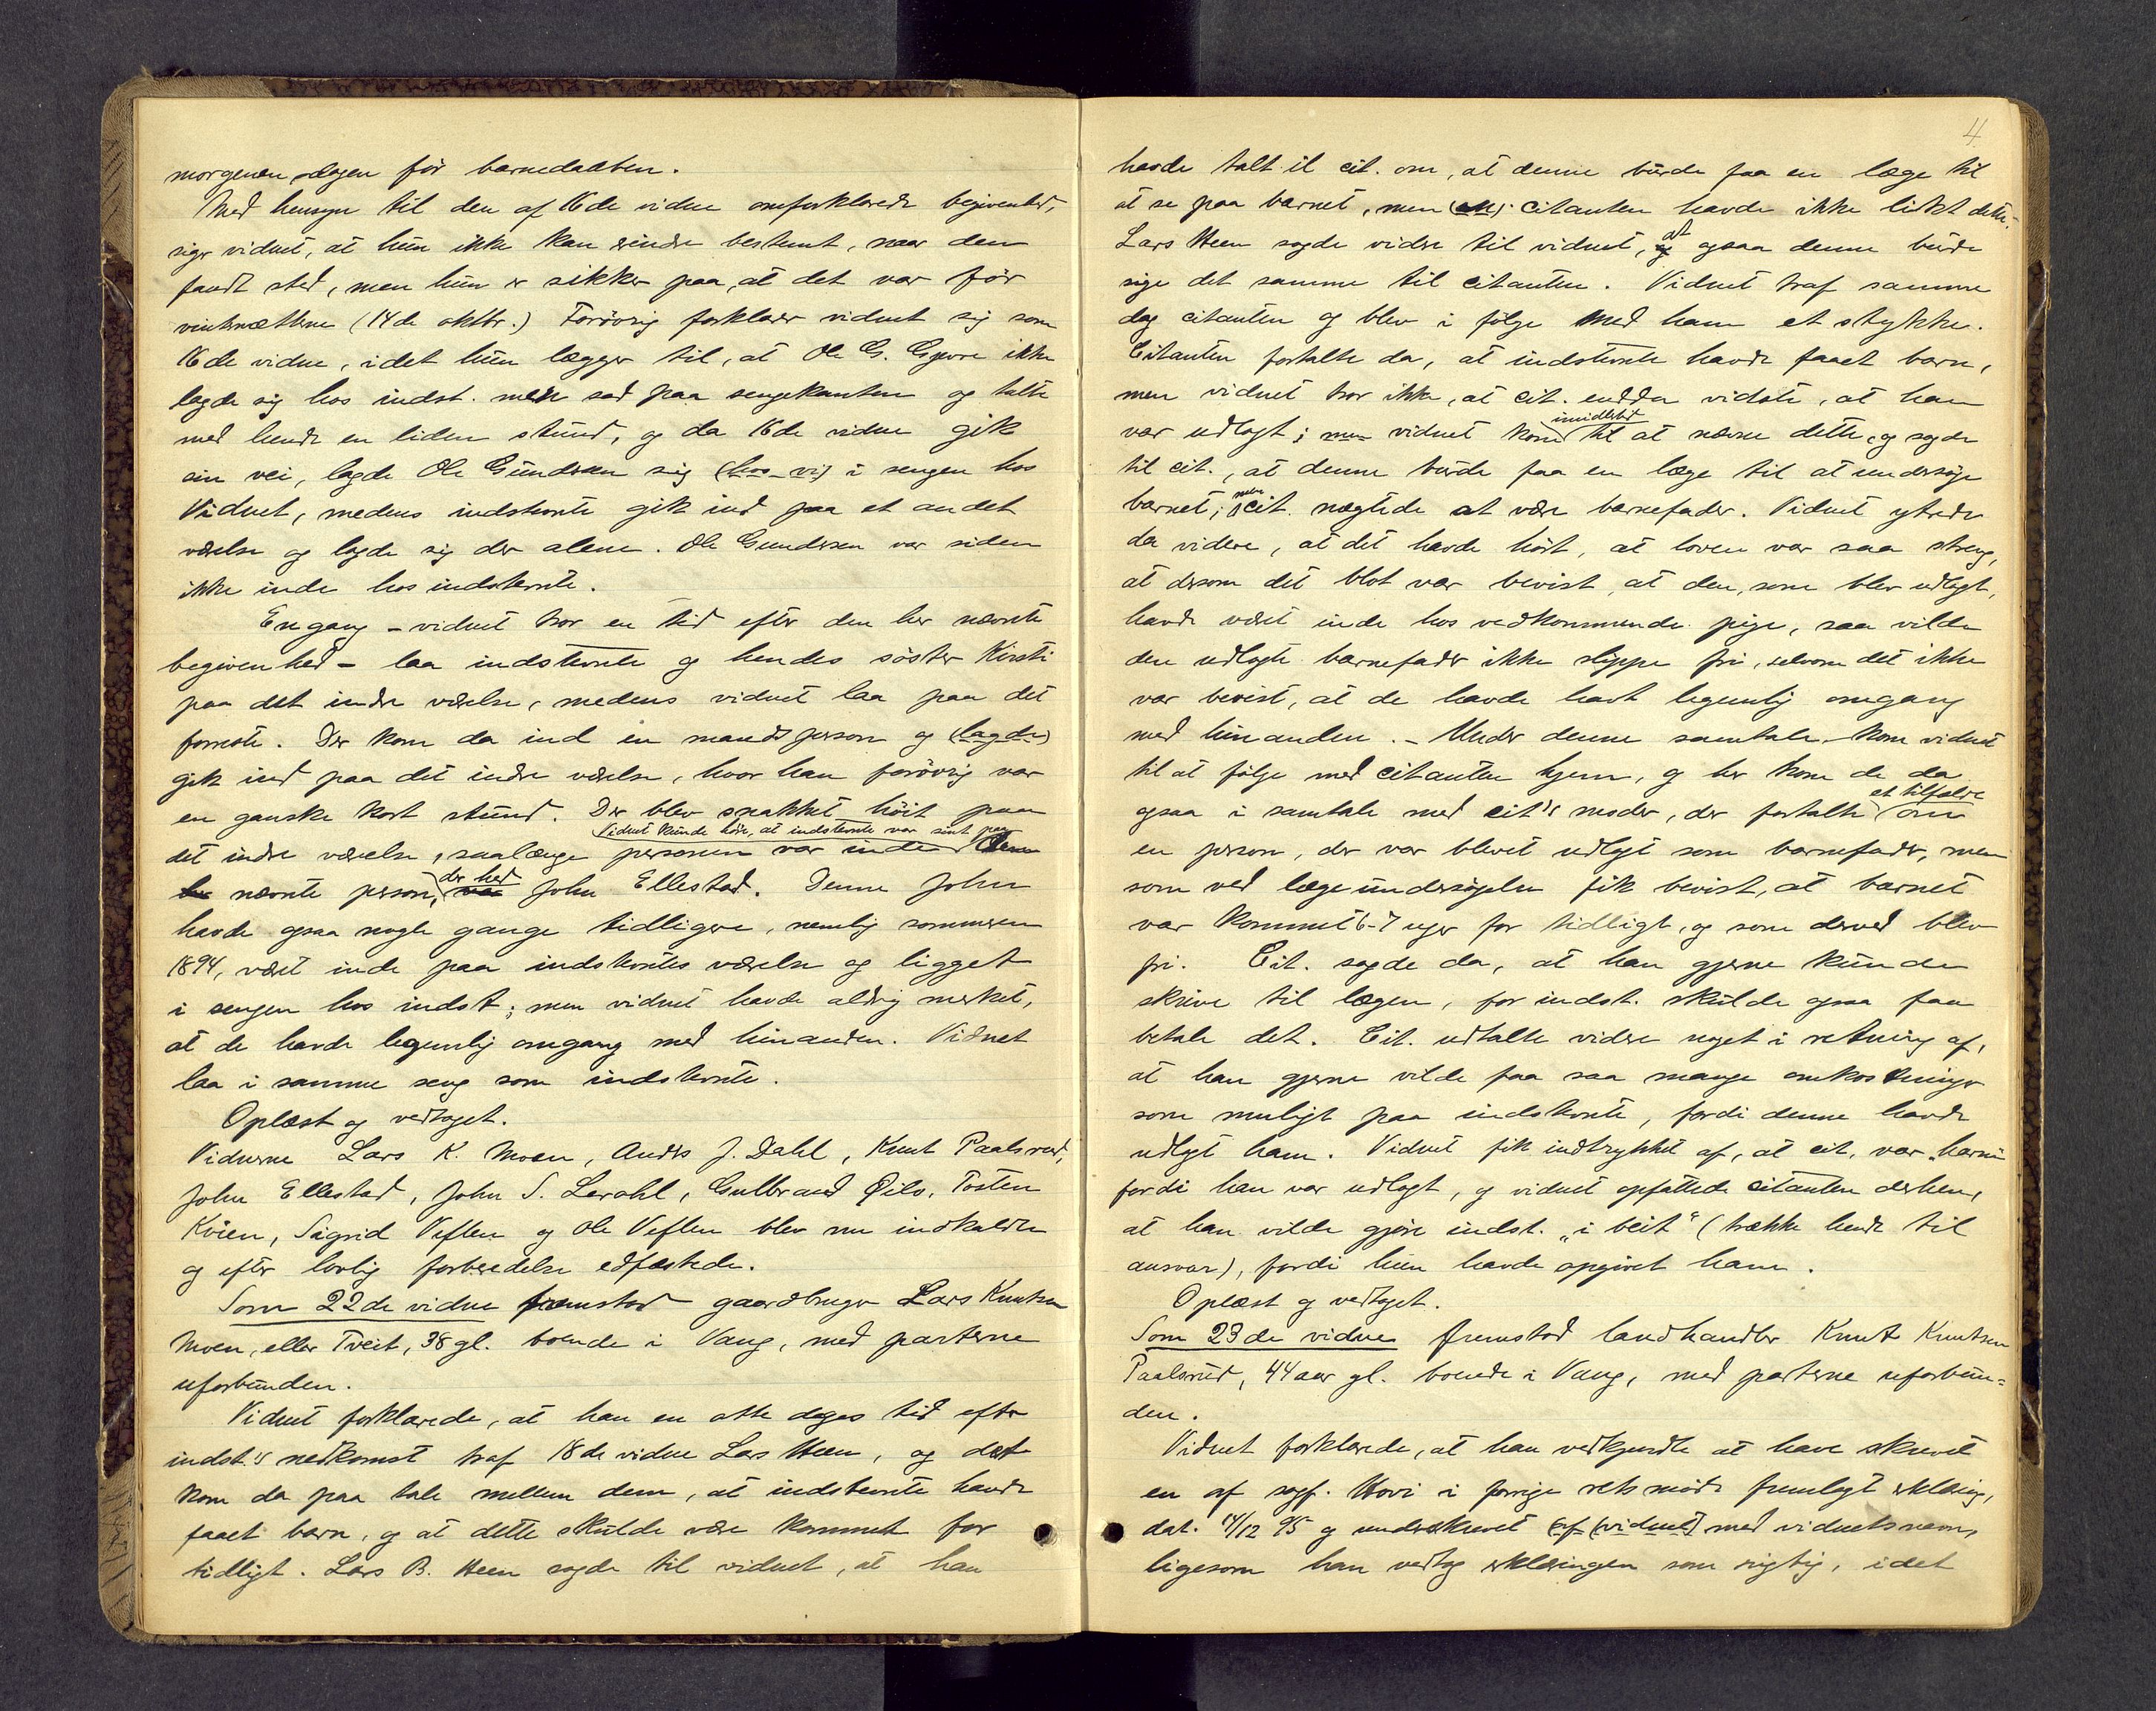 morgenen dagen för barnedaaben.
Med hensyn til den af 16de vidne omforklarede begivenhed,
siger vidnet, at hun ikke kan erindre bestemt, naar den
fandt sted, men hun er sikker paa, at det var för
vinternætterne (14de oktbr.) Forövrig forklarer vidnet sig som
16de vidne, idet hun lægger til, at Ole G. Gjevre ikke
lagde sig hos indst. men sad paa sengekanten og talte
med hende en liden stund, og da 16de vidne gik
sin vei, lagde Ole Gundersen sig (hos vi) i sengen hos
Vidnet, medens indstevnte gik ind paa et andet
værelse og lagde sig der alene. Ole Gundersen var siden
ikke inde hos indstevnte.
Engang – vidnet tror en tid efter den her nævnte
begivenhed – laa indstevnte og hendes söster Kirsti
paa det indre værelse, medens vidnet laa paa det
forreste. Der kom da ind en mandsperson og (lagde)
gik ind paa det indre værelse, hvor han forövrig var
en ganske kort stund. Der blev snakket höit paa
Vidnet kunde höre, at indstevnte var sint paa
det indre værelse, saalænge personen var inde. Den
her nævnte person, der hed var John Ellestad. Denne John
havde ogsaa nogle gange tidligere, nemlig sommeren
1894, været inde paa indstevntes værelse og ligget
i sengen hos indst; men vidnet havde aldrig merket,
at de havde legemlig omgang med hinanden. Vidnet
laa i samme seng som indstevnte.
Oplæst og vedtaget.
Vidnerne Lars K. Moen, Anders J. Dahl, Knut Paalsrud,
John Ellestad, John S. Lerohl, Gulbrand Öilo, Tosten
Kvien, Sigrid Veflen og Ole Veflen blev nu indkaldte
og efter lovlig forberedelse edfæstede.
Som 22de vidne fremstod gaardbruger Lars Knutsen
Moen, eller Tveit, 38 gl. boende i Vang, med parterne
uforbunden.
Vidnet forklarede, at han en otte dages tid efter
indst.'s nedkomst traf 18de vidne Lars Heen, og det
kom da paa tale mellem dem, at indstevnte havde
faaet barn, og at dette skulde være kommet for
tidligt. Lars B. Heen sagde til vidnet, at han
4
havde talt til cit. om, at denne burde faa en læge til
at se paa barnet, men citanten havde ikke likt dette.
Lars Heen sagde videre til vidnet, at ogsaa denne burde
sige det samme til citanten. Vidnet traf samme
dag citanten og blev i fölge med ham et stykke.
Citanten fortalte da, at indstevnte havde faaet barn,
men vidnet tror ikke, at cit. endda vidste, at han
var udlagt; men vidnet kom imidlertid til at nævne dette, og sagde
til cit., at denne burde faa en læge til at undersöge
barnet; men cit. nægtede at være barnefader. Vidnet ytrede
da videre, at det havde hört, at loven var saa streng,
at dersom det blot var bevist, at den, som blev udlagt,
havde været inde hos vedkommende pige, saa vilde
den udlagte barnefader ikke slippe fri, selvom det ikke
var bevist, at de havde havt legemlig omgang
med hinanden. – Under denne samtale kom vidnet
til at fölge med citanten hjem, og her kom de da
ogsaa i samtale med cit's moder, der fortalte om et tilfælde
en person, der var blevet udlagt som barnefader, men
som ved lægeundersögelse fik bevist, at barnet
var kommet 6-7 uger for tidligt, og som derved blev
fri. Cit. sagde da, at han gjerne kunde
skrive til lægen, for indst. skulde ogsaa faa
betale det. Cit. udtalte videre noget i retning af,
at han gjerne vilde faa saa mange omkostninger
som muligt paa indstevnte, fordi denne havde
udlagt ham. Vidnet fik indtrykket af, at cit. var „harm"
fordi han var udlagt, og vidnet opfattede citanten derhen,
at han vilde gjöre indst. „i beit" (trække hende til
ansvar), fordi hun havde opgivet ham.
Oplæst og vedtaget.
Som 23de vidne fremstod landhandler Knut Knutsen
Paalsrud, 44 aar gl. boende i Vang, med parterne uforbun=
den.
Vidnet forklarede, at han vedkjendte at have skrevet
en af sagf. Hovi i forrige retsmöde fremlagt erklæring,
dat. 14/12 95 og underskrevet (af (vidnet) med vidnets navn,
ligesom han vedtog erklæringen som rigtig, idet